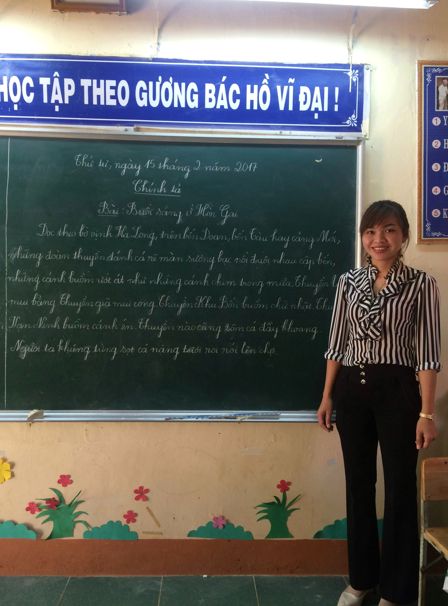 HỌC TẬP THEO GƯƠNG BÁC HỒ VĨ ĐẠI !
Thứ tư, ngày 15 tháng 2 năm 2017
Chính tả
Bài: Bước sáng ở Hòn Gai
Dọc theo bờ vịnh Hạ Long, trên bến Đoan, bến Tàu hay cảng Mới,
những đoàn thuyền đánh cá rẽ màn sương bạc nối đuôi nhau cập bến,
những cánh buồm ướt át như những cánh chim trong mưa. Thuyền
mui bằng. Thuyền giã mui cong. Thuyền Khu Bốn buồm chữ nhật. Thuyền
Vạn Ninh buồm cánh én. Thuyền nào cũng tôm cá đầy khoang.
Người ta khiêng từng sọt cá nặng tươi roi rói lên chợ.
1
2
3
4
5